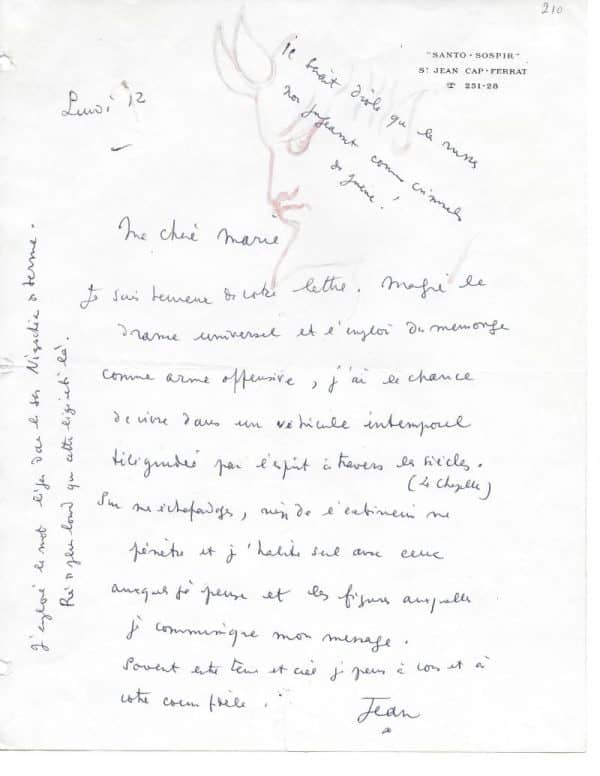 210
"SANTO-SOSPIR"
St JEAN CAP-FERRAT
☎ 251-28
Lundi 12
il serait drôle que les russes
nous jugeassent comme criminels
de guerre!
Ma chère Marie
Je suis heureux de votre lettre. Malgré le
drame universel et l'emploi du mensonge
comme arme offensive, j'ai la chance
de vivre dans un véhicule intemporel
téléguidé par l'esprit à travers les siècles.
(La Chapelle)
Sur mes échafaudages, rien de l'extérieur ne
pénètre et j'habite seul avec ceux
auxquels je pense et les figures auxquelles
je communique mon message.
Souvent entre terre et ciel je pense à vous et à
votre coeur fidèle.
Jean
J'emploie le mot dans le sens du terme.
Rien de plus lourd que cette là.